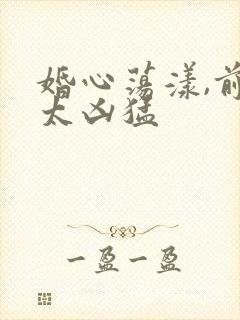 婚心荡漾,前
太凶猛
一盈一盈